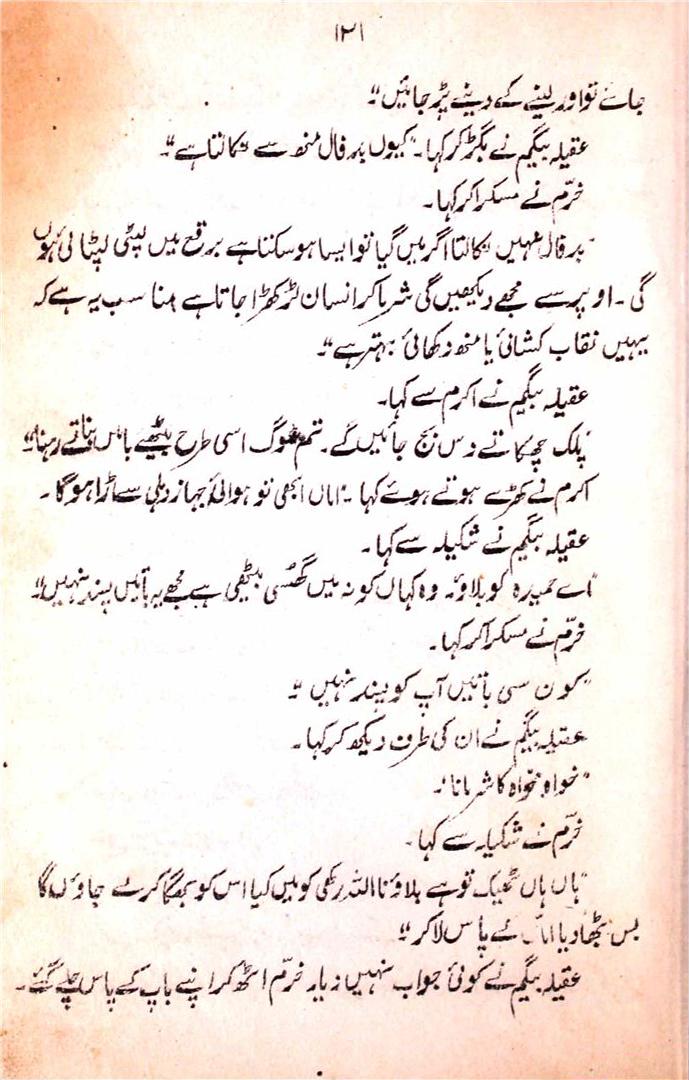 ۱۲۱
جائے تو اور لینے کے دینے پڑ جائیں"
عقیلہ بیگم نے بگڑ کر کہا۔ "کیوں بد فال منھ سے نکالتا ہے"۔
خرّم نے مسکرا کر کہا۔
"بد فال نہیں نکالتا اگر میں گیا تو ایسا ہو سکتا ہے برقع میں لپٹی لپٹائی ہوں
گی۔ اوپر سے مجھے دیکھیں گی شرما کر انسان لڑکھڑا جاتا ہے مناسب یہ ہے کہ
یہیں نقاب کشائی یا منھ دکھائی بہتر ہے"۔
عقیلہ بیگم نے اکرم سے کہا۔
"پلک جھپکاتے دس بج جائیں گے۔ تم لوگ اسی طرح بیٹھے باتیں بناتے رہنا"
اکرم نے کھڑے ہوتے ہوئے کہا۔ "اماں ابھی تو ہوائی جہاز دہلی سے اڑا ہو گا۔
عقیلہ بیگم نے شکیلہ سے کہا۔
"اے حمیدہ کو بلاؤ۔ وہ کہاں کونہ میں گھُسی بیٹھی ہے مجھے یہ باتیں پسند نہیں"
خرّم نے مسکرا کر کہا۔
"کون سی باتیں آپ کو پسند نہیں"
عقیلہ بیگم نے ان کی طرف دیکھ کر کہا۔
"خواہ مخواہ کا شرمانا"۔
خرّم نے شکیلہ سے کہا۔
"ہاں ہاں ٹھیک تو ہے بلاؤ نا اللہ رکھی کو میں کیا اس کو بھگا کر لے جاؤں گا
بس بٹھا دیا اماں کے پاس لا کر"
عقیلہ بیگم نے کوئی جواب نہیں دیا۔ خرّم اٹھ کر اپنے باپ کے پاس چلے گئے۔